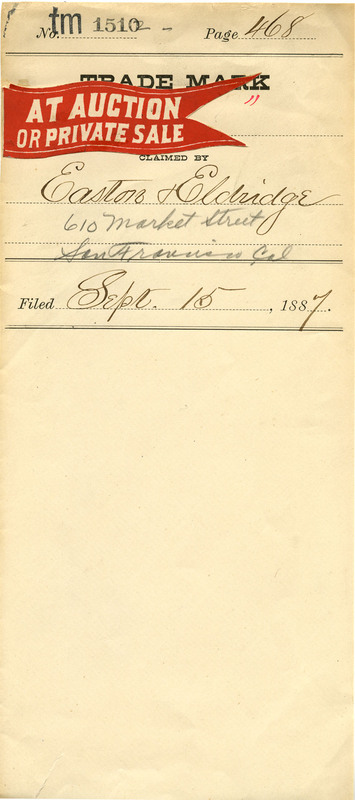 No. tm 1510 2 - Page 468
TRADE MARK
"
AT AUCTION
OR PRIVATE SALE
CLAIMED BY
Easton & Eldridge
610 Market Street
San Francisco Cal
Filed Sept. 15, 1887.